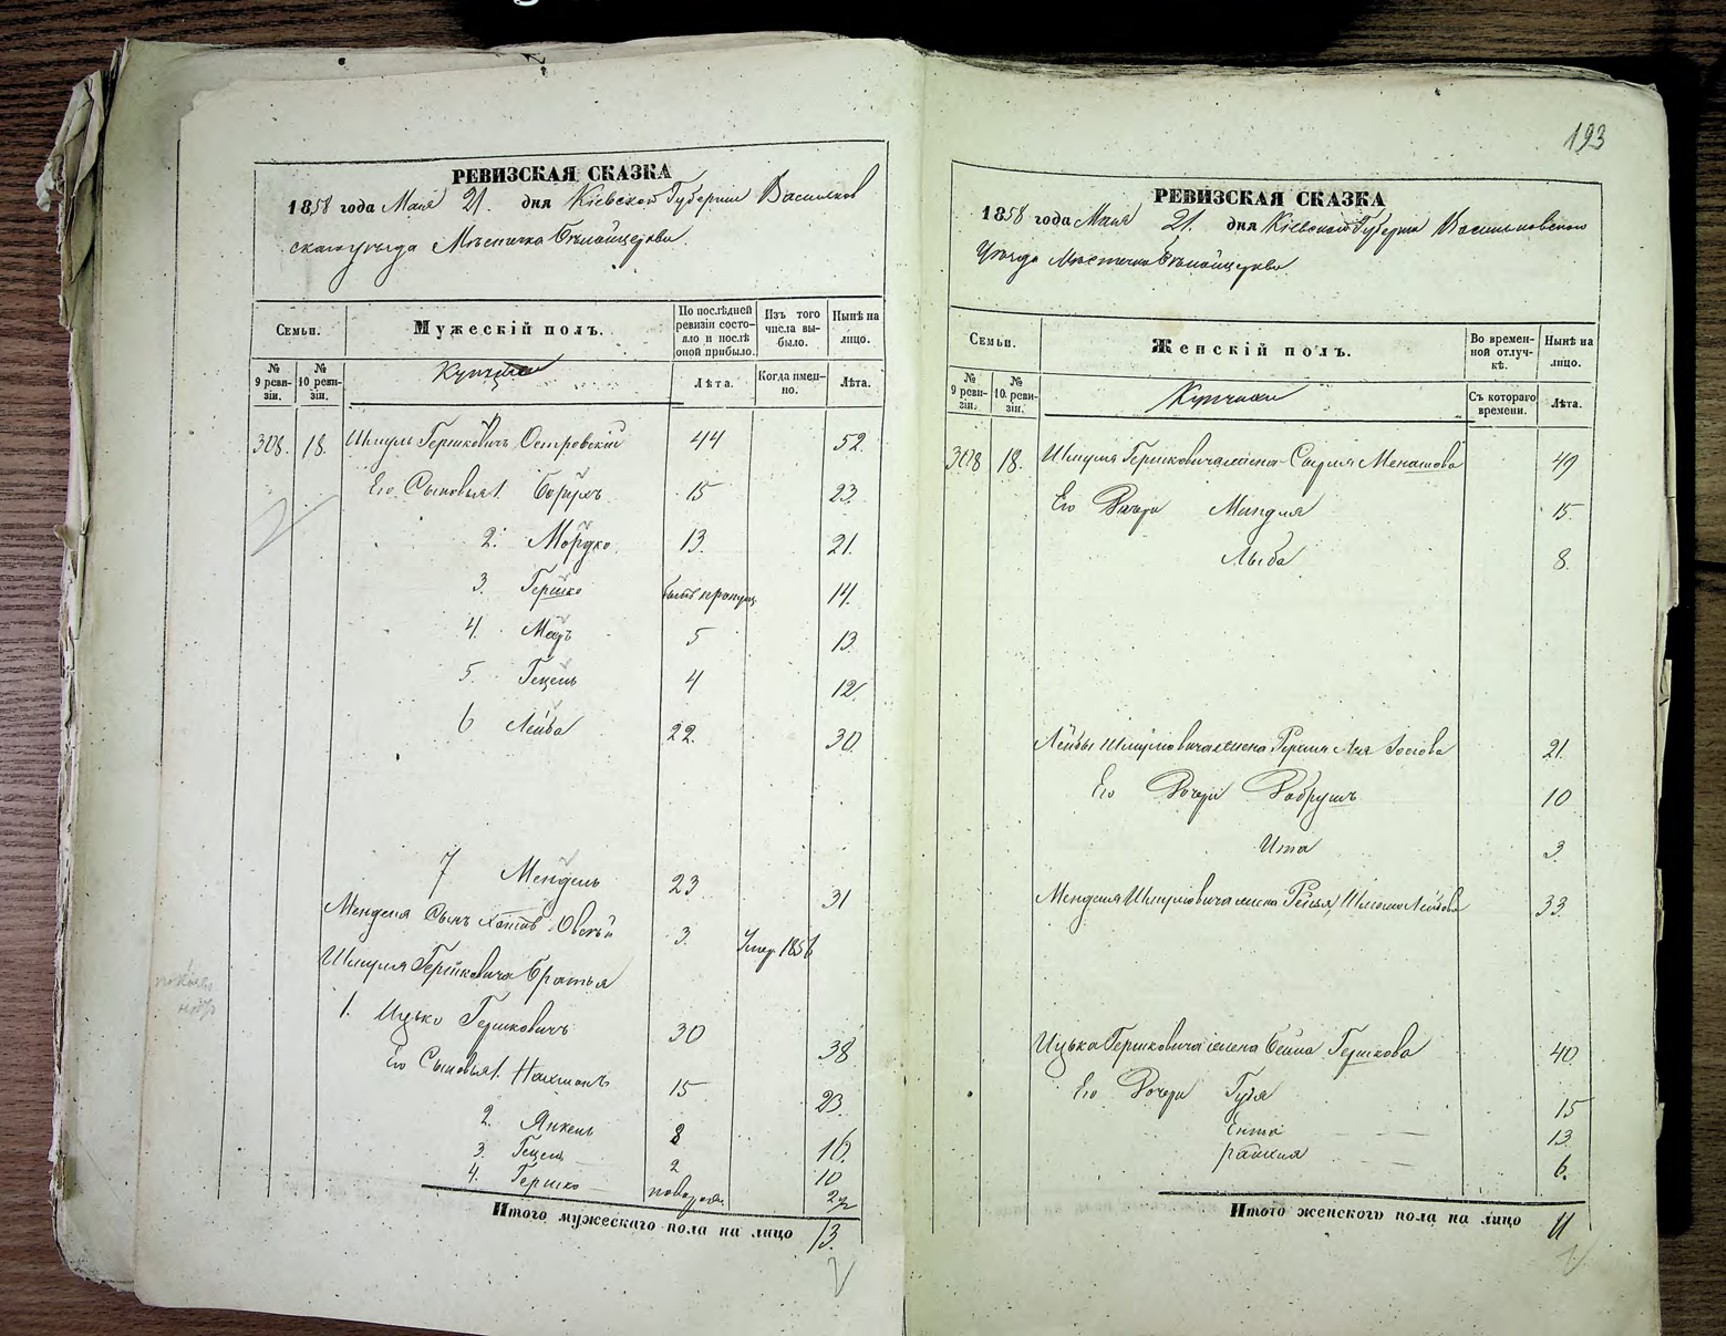 193
РЕВИЗСКАЯ СКАЗКА
1858 года Мая 21. дня Кіевской Губерніи Васильков
скаго уѣзда Мѣстечка Бѣлойцеркви.
Семьи.
Мужескій полъ.
По послѣдней ревизіи состояло и послѣ оной прибыло.
Изъ того числа выбыло.
Нынѣ на лицо.
№ 9 ревизіи.
№ 10 ревизіи.
Купцы
Лѣта.
Когда именно.
Лѣта.
308. 18. Шмуль Гершковичъ Островскій 44 52.
Его Сыновья 1. Борухъ 15 23.
2. Мордко 13. 21.
3. Гершко 14.
4. 5 13
5. Гецель 4 12
6 Лейба 22. 30
7 Мендель 23 31
Менделя Сынъ 3. Умер. 1856
Шмуля Гершковича Братья
1. Ицько Гершковичъ 30 38
Его Сыновья 1. Нахманъ 15 23.
2. Янкель 8 16.
3. Гецель 2 10
4. Гершко
Итого мужескаго пола на лицо 13.
РЕВИЗСКАЯ СКАЗКА
1858 года Мая 21. дня Кіевской Губерніи Васильковскаго
Уѣзда Мѣстечка Бѣлойцеркви
Семьи.
Женскій полъ.
Во временной отлучкѣ.
Нынѣ на лицо.
№ 9 ревизіи.
№ 10 ревизіи.
Съ котораго времени.
Лѣта.
308 18. Шмуля Гершковича жена 49
Его Дочери Миндля 15.
Лыба 8.
Лейбы Шмулювича жена 21.
Его Дочери Добрушъ 10
Ита 3.
Менделя Шмулювича жена 33.
Ицька Гершковича жена Бейла Гершкова 40
Его Дочери 15
Ента 13
6.
Итого женскаго пола на лицо 11